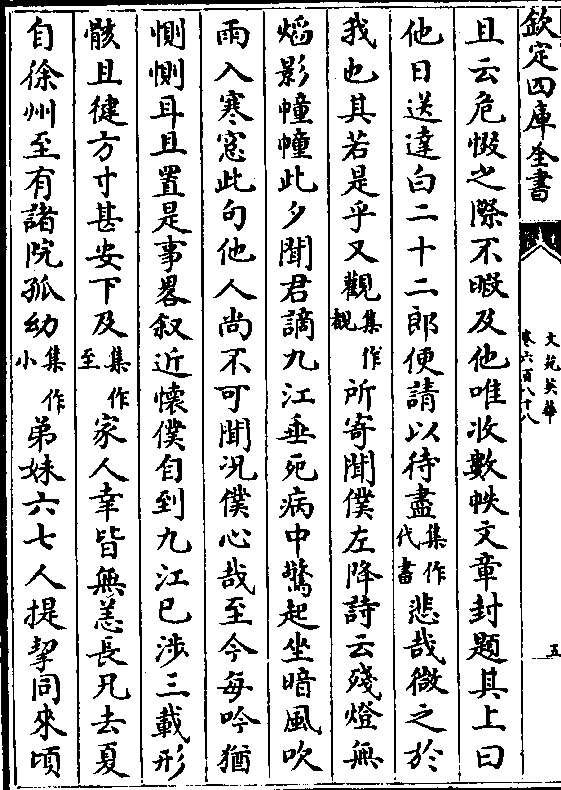 欽定四庫全書
文苑英華
卷六百八十八
五
且云危惙之際不暇及他唯收數帙文章封題其上曰
他日送達白二十二郎便請以待盡集作代書悲哉微之於
我也其若是乎又觀集作覩所寄聞僕左降詩云殘燈無
焰影幢幢此夕聞君謫九江垂死病中驚起坐暗風吹
雨入寒窓此句他人尚不可聞況僕心哉至今每吟猶
惻惻耳且置是事畧叙近懷僕自到九江已涉三載形
骸且健方寸甚安下及集作至家人幸皆無恙長兄去夏
自徐州至有諸院孤幼集作小弟妹六七人提挈同來頃